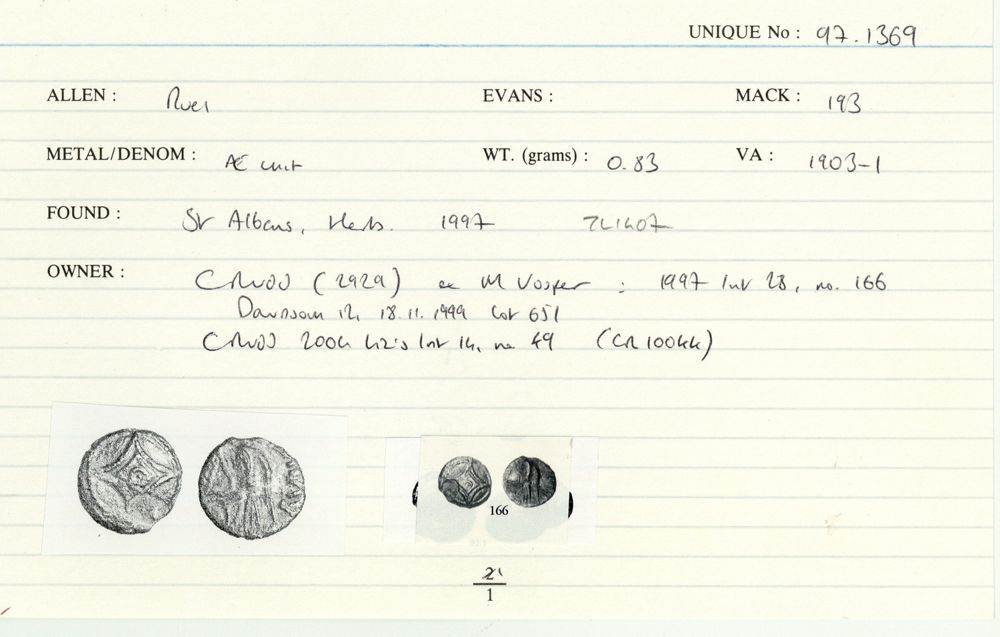 UNIQUE No : 97.1369
ALLEN : Rues EVANS : MACK : 193
METAL/DENOM : Æ unit WT. (grams) : 0.83 VA : 1903-1
FOUND : St Albans, Herts. 1997 TL1407
OWNER : (2929) ex M Vosper : 1997 list 28, no. 166
12, 18.11.1999 lot 651
2004 Liz's list 14, no 49 (CR 10044)
166
21
1